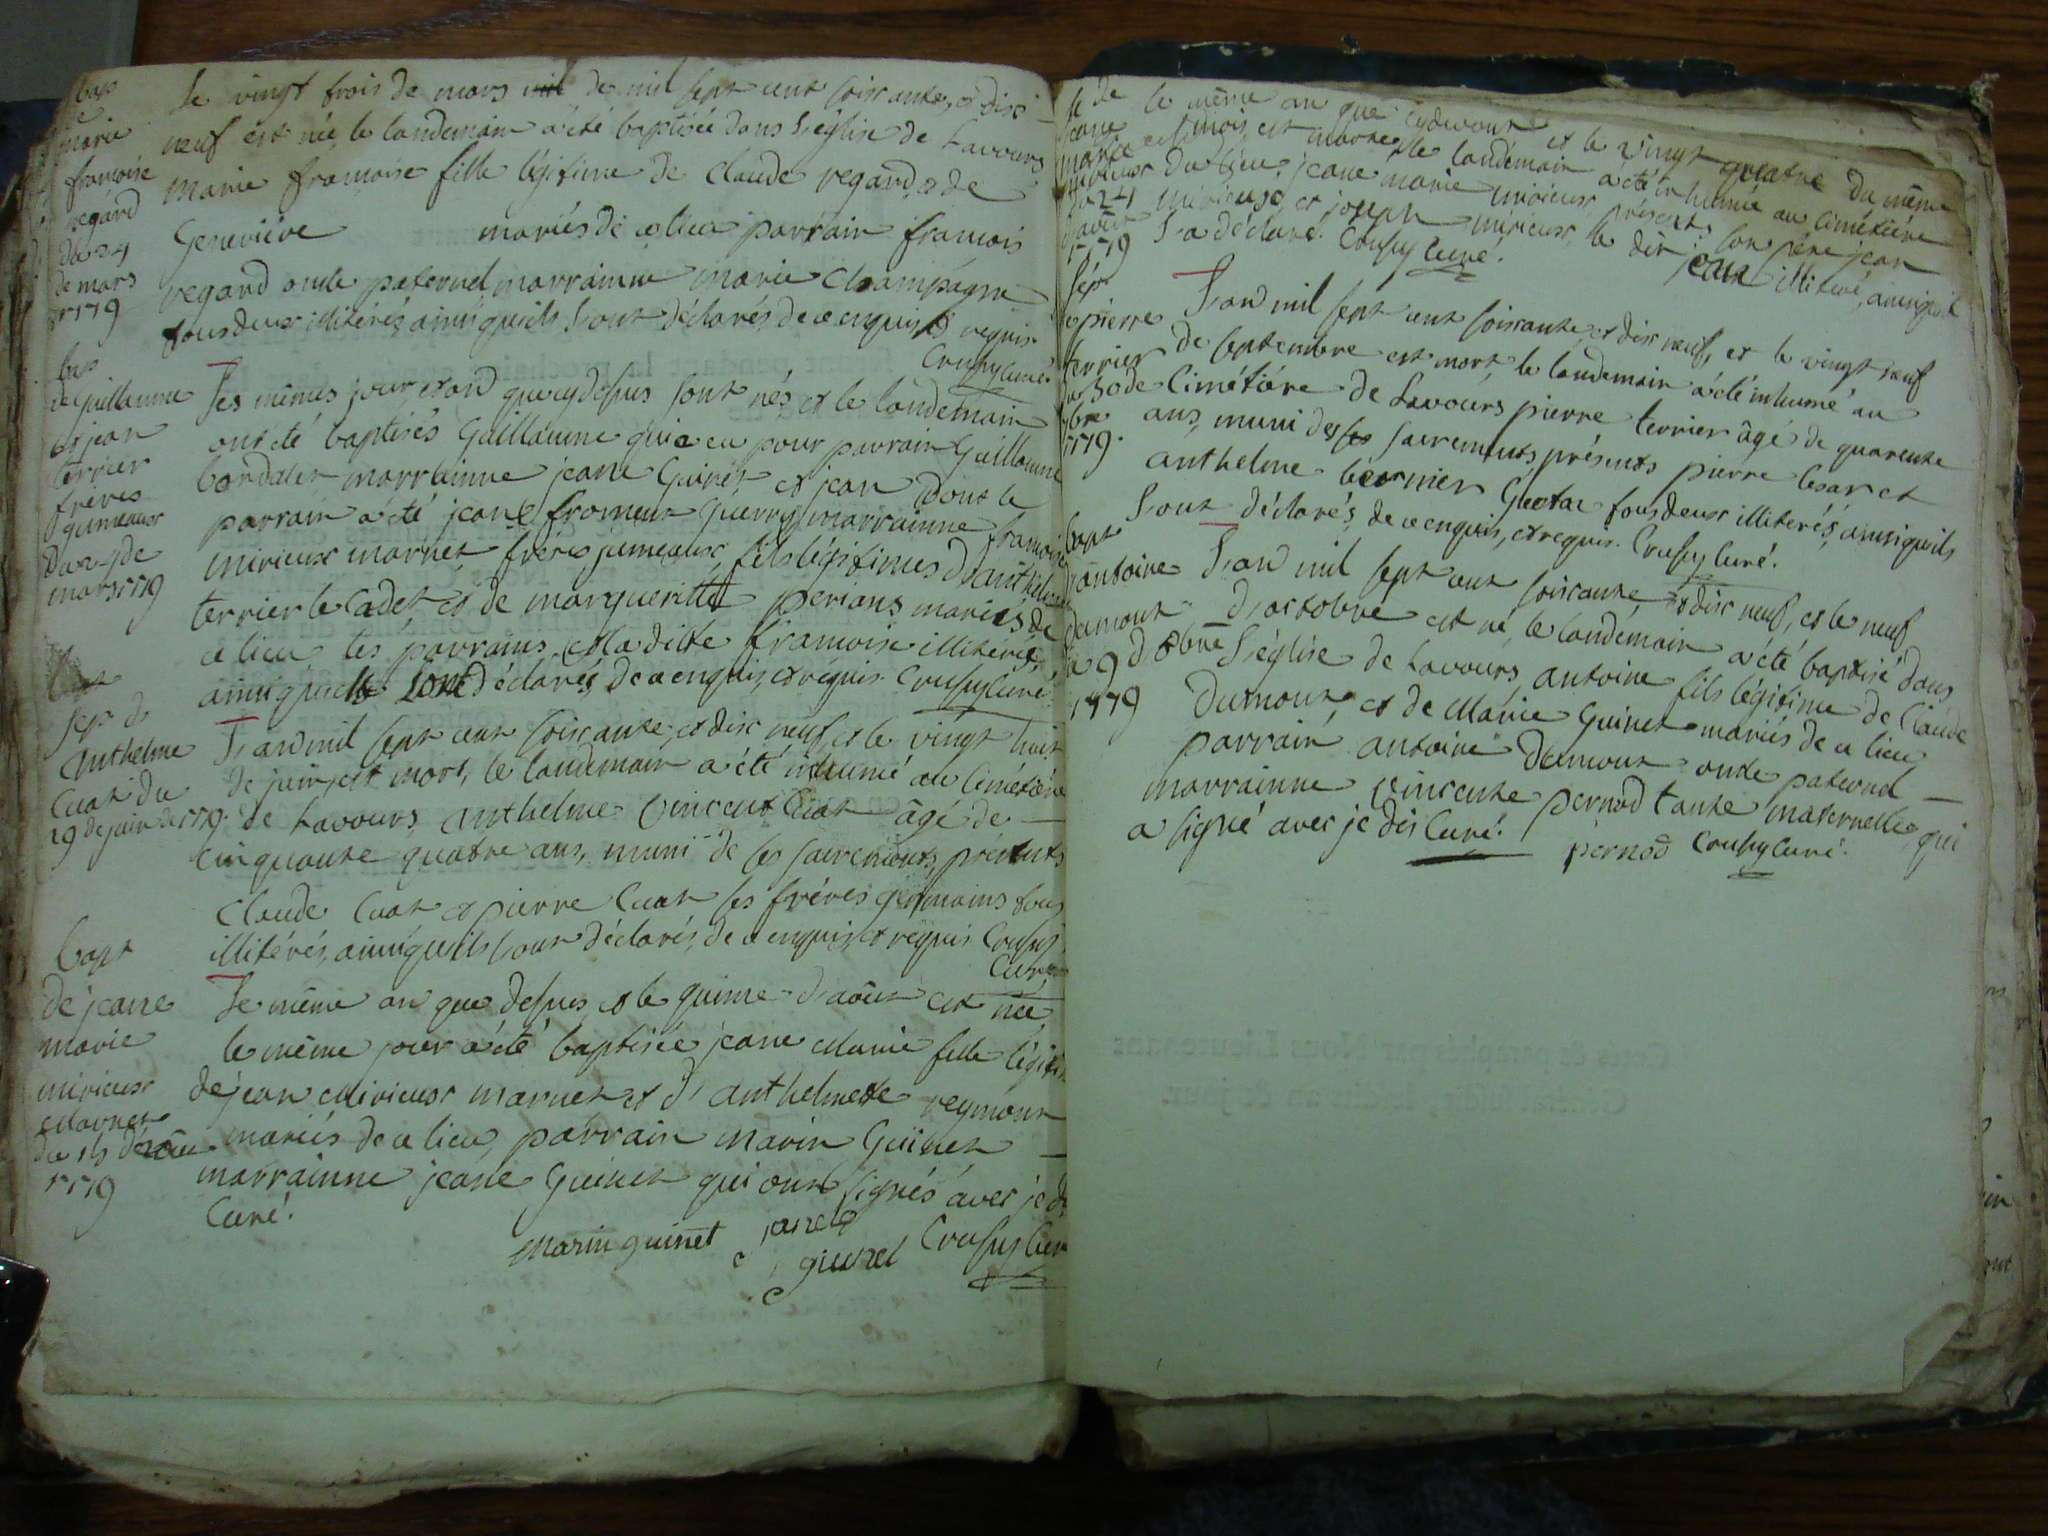 bap
de
marie
francoise
regard
du 24
de mars
1779
Le vingt trois de mars mil de mil sept cent soixante, & dix
neuf est née, le landemain a été baptisée dans l'église de Lavours
marie francoise fille légitime de Claude regard & de
Geneviève mariés de ce lieu parrain francois
regard oncle paternel marrainne marie Champagne
tous deux illitérés ainsi qu'ils l'ont déclarés de ce enquis, & requis.
Crussy curé.
bap
de Guillaume
et jean
terrier
frères
gumeaux
du 24 de
mars 1779
Les mêmes jour et and que cy dessus sont nés et le landemain
ont été baptisés Guillaume qui a eu pour parrain Guillaume
marrainne jeane Guinet et jean dont le
parrain a été jean froment Guerry marrainne francoise
mirieux marnet, frères jumeaux, fils légitimes d'anthelme
terrier le Cadet et de margueritte mariés de
ce lieu les parrains, et la ditte francoise illiterés,
ainsi qu'ils l'ont déclarés, de ce enquis, et requis Crussy curé.
Sep. d'
anthelme
Cuat du
29 de juin de 1779.
L'and mil sept cent soixante, et dix neuf, et le vingt huit
de juin est mort, le landemain a été inhumé au cimetière
de Lavours, anthelme Vincent Cuat âgé de
cinquante quatre ans, muni de ses sacrements, présents
Claude Cuat et pierre Cuat ses frères germains tous
illitérés, ainsi qu'ils l'ont déclarés, de ce enquis, et requis Crussy
curé
bapt
de jeane
marie
mirieux
Marnet
du 15 d'août
1779
Le même an que dessus, et le quinze d'août est née,
le même jour a été baptisée jeane Marie fille légitime
de jean Mirieux marnet et d'anthelmette reymont
mariés de ce lieu, parrain marin Guinet
marrainne jeane Guinet qui ont signés avec je dit
Curé.
marin guinet jane guinel Crussy curé
de
jeane
marie
mirieux
du 24
d'août
1779
le même an que cydevant et le vingt quatre du même
mois, est morte, le landemain a été inhumée au cimetière
du lieu, jeane marie mirieux, présents son père jean
mirieux, et joseph mirieux, le dit jean illiteré, ainsi qu'il
l'a déclaré. Crussy curé.
Sép.
de pierre
terrier
du 30 de
7bre
1779.
L'and mil sept cent soixante, et dix neuf, et le vingt neuf
de septembre est mort le landemain a été inhumé au
Cimétière de Lavours pierre terrier âgé de quarente
ans, muni des sacrements, présents pierre besar et
anthelme tous deux illiterés, ainsi qu'ils
l'ont déclarés, de ce enquis, et requis. Crussy curé.
bapt
d'antoine
dumont
du 9 d'8bre
1779
L'and mil sept cent soixante, et dix neuf, et le neuf
d'actobre est né, le landemain a été baptisé dans
l'église de Lavours, antoine fils légitime de Claude
Dumont, et de Marie Guinet mariés de ce lieu
parrain antoine Dumont oncle paternel
marrainne vincente pernod tante maternelle, qui
a signé avec je dit Curé. pernod Crussy curé.